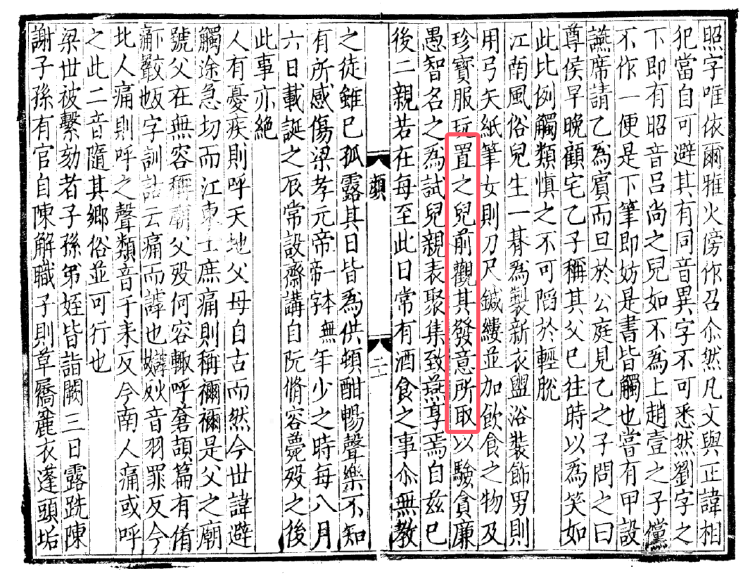 照字唯依爾雅火傍作召尒然凡文與正諱相
犯當自可避其有同音異字不可悉然劉字之
下即有昭音呂尚之兒如不為上趙壹之子儻
不作一便是下筆即妨是書皆觸也嘗有甲設
讌席請乙為賓而旦於公庭見乙之子問之曰
尊侯早晚顧宅乙子稱其父已往時以為笑如
此比例觸類慎之不可陷於輕脫
江南風俗兒生一朞為製新衣盥浴裝飾男則
用弓矢紙筆女則刀尺鍼縷並加飲食之物及
珍寶服玩置之兒前觀其發意所取以驗貪廉
愚智名之為試兒親表聚集致讌享焉自茲已
後二親若在每至此日常有酒食之事尒無教
二十
之徒雖已孤露其日皆為供頓酣暢聲樂不知
有所感傷梁孝元帝帝一本無年少之時每八月
六日載誕之辰常設齋講自阮脩容薨歿之後
此事亦絕
人有憂疾則呼天地父母自古而然今世諱避
觸途急切而江東士庶痛則稱禰禰是父之廟
號父在無容稱廟父歿何容輒呼蒼頡篇有侑
字訓詁云痛而謼也音羽罪反今
北人痛則呼之聲類音于耒反今南人痛或呼
之此二音隨其鄉俗並可行也
梁世被繫劾者子孫弟姪皆詣闕三日露跣陳
謝子孫有官自陳解職子則草屩麤衣蓬頭垢